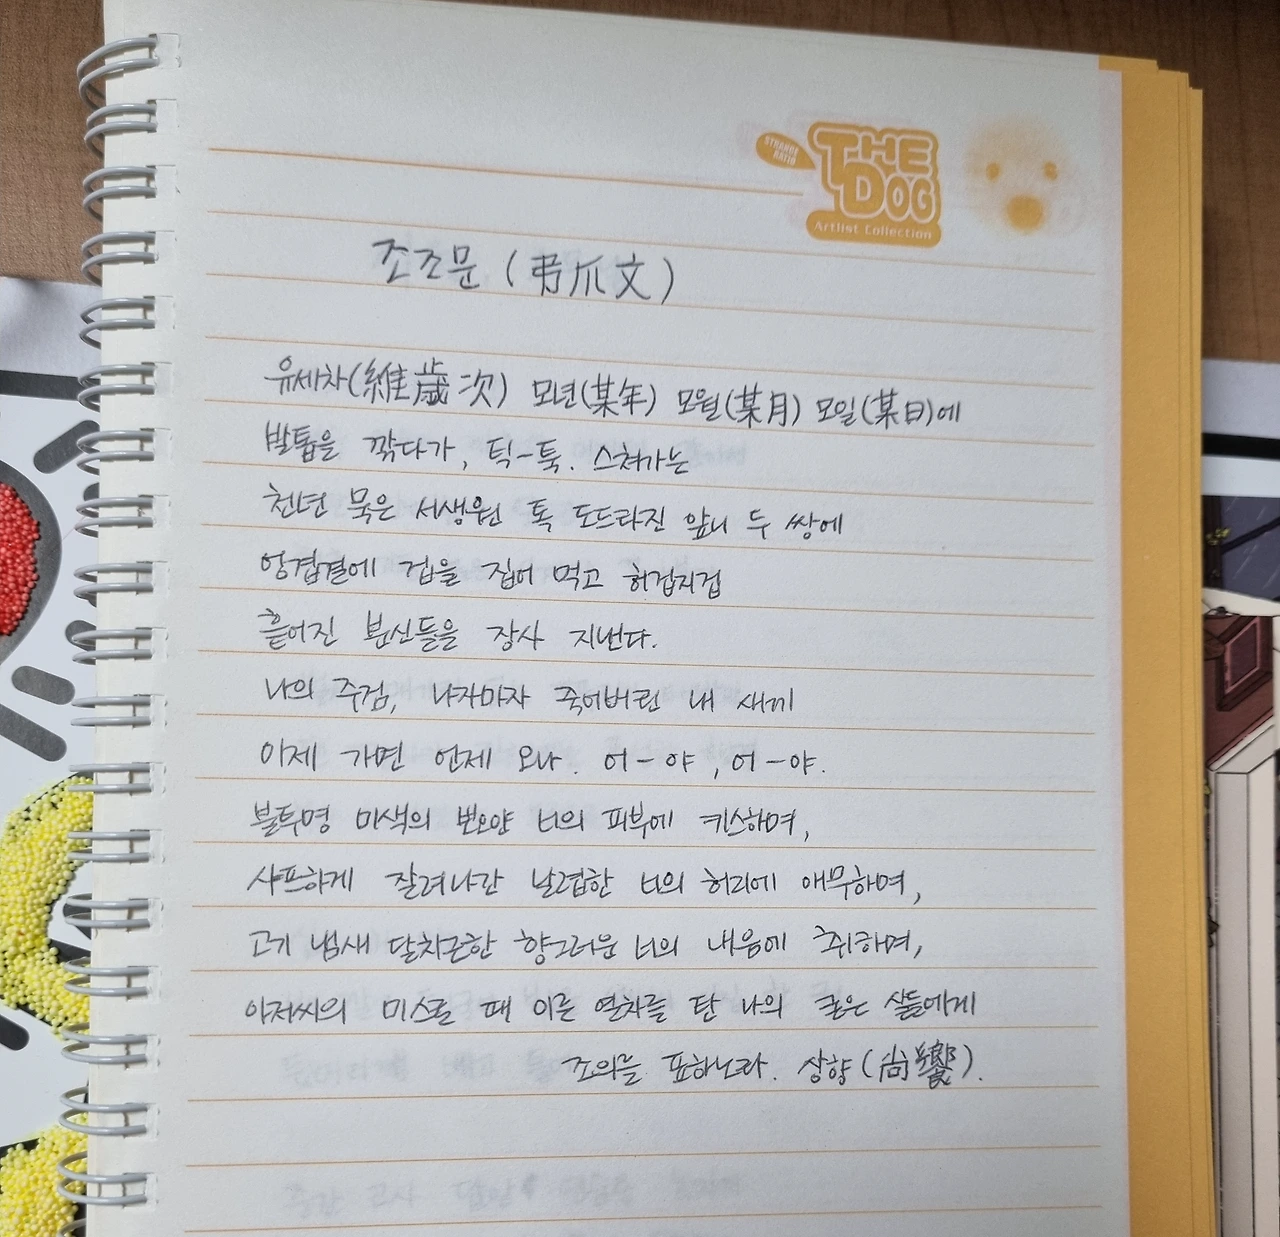 STRANGE RATIO
THE DOG
Artlist Collection
조조문 (弔爪文)
유세차(維歲次) 모년(某年) 모월(某月) 모일(某日)에
발톱을 깎다가, 틱-툭. 스쳐가는
천년 묵은 서생원 톡 도드라진 앞니 두 쌍에
엉겁결에 겁을 집어 먹고 허겁지겁
흩어진 분신들을 장사 지낸다.
나의 주검, 나자마자 죽어버린 내 새끼
이제 가면 언제 오나. 어-야, 어-야.
불투명 미색의 뽀오얀 너의 피부에 키스하며,
샤프하게 잘려나간 날렵한 너의 허리에 애무하며,
고기 냄새 달차근한 향그러운 너의 내음에 취하며,
아저씨의 미스로 때 이른 열차를 탄 나의 같은 살들에게
조의를 표하노라. 상향(尙饗).